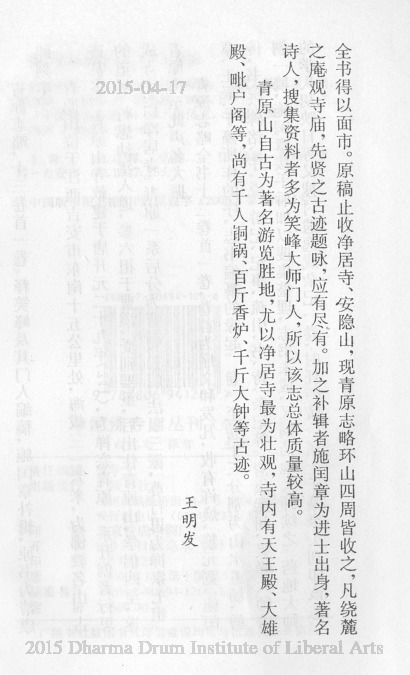 全书得以面市。原稿止收净居寺、安隐山，现青原志略环山四周皆收之，凡绕麓
之庵观寺庙，先贤之古迹题咏，应有尽有。加之补辑者施闰章为进士出身，著名
诗人，搜集资料者多为笑峰大师门人，所以该志总体质量较高。
青原山自古为著名游览胜地，尤以净居寺最为壮观，寺内有天王殿、大雄
殿、毗户阁等，尚有千人铜锅、百斤香炉、千斤大钟等古迹。
王明发
2015-04-17
2015 Dharma Drum Institute of Liberal Arts